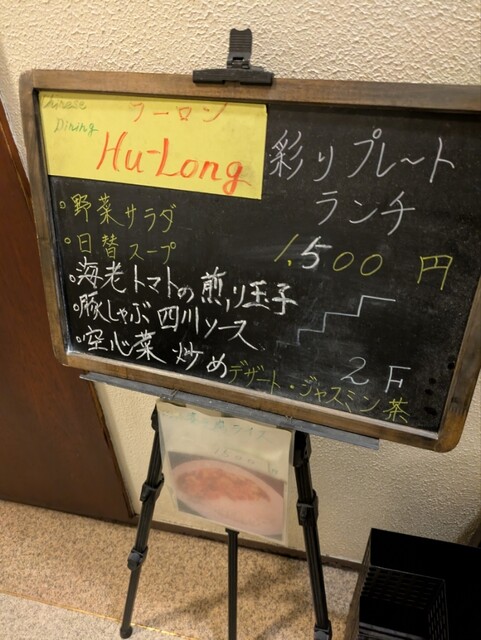 Chinese
Dining
フーロン
Hu-Long
彩りプレート
ランチ
1.500円
・野菜サラダ
・日替スープ
・海老トマトの煎り玉子
・豚しゃぶ四川ソース
・空心菜炒め
デザート・ジャスミン茶
2F